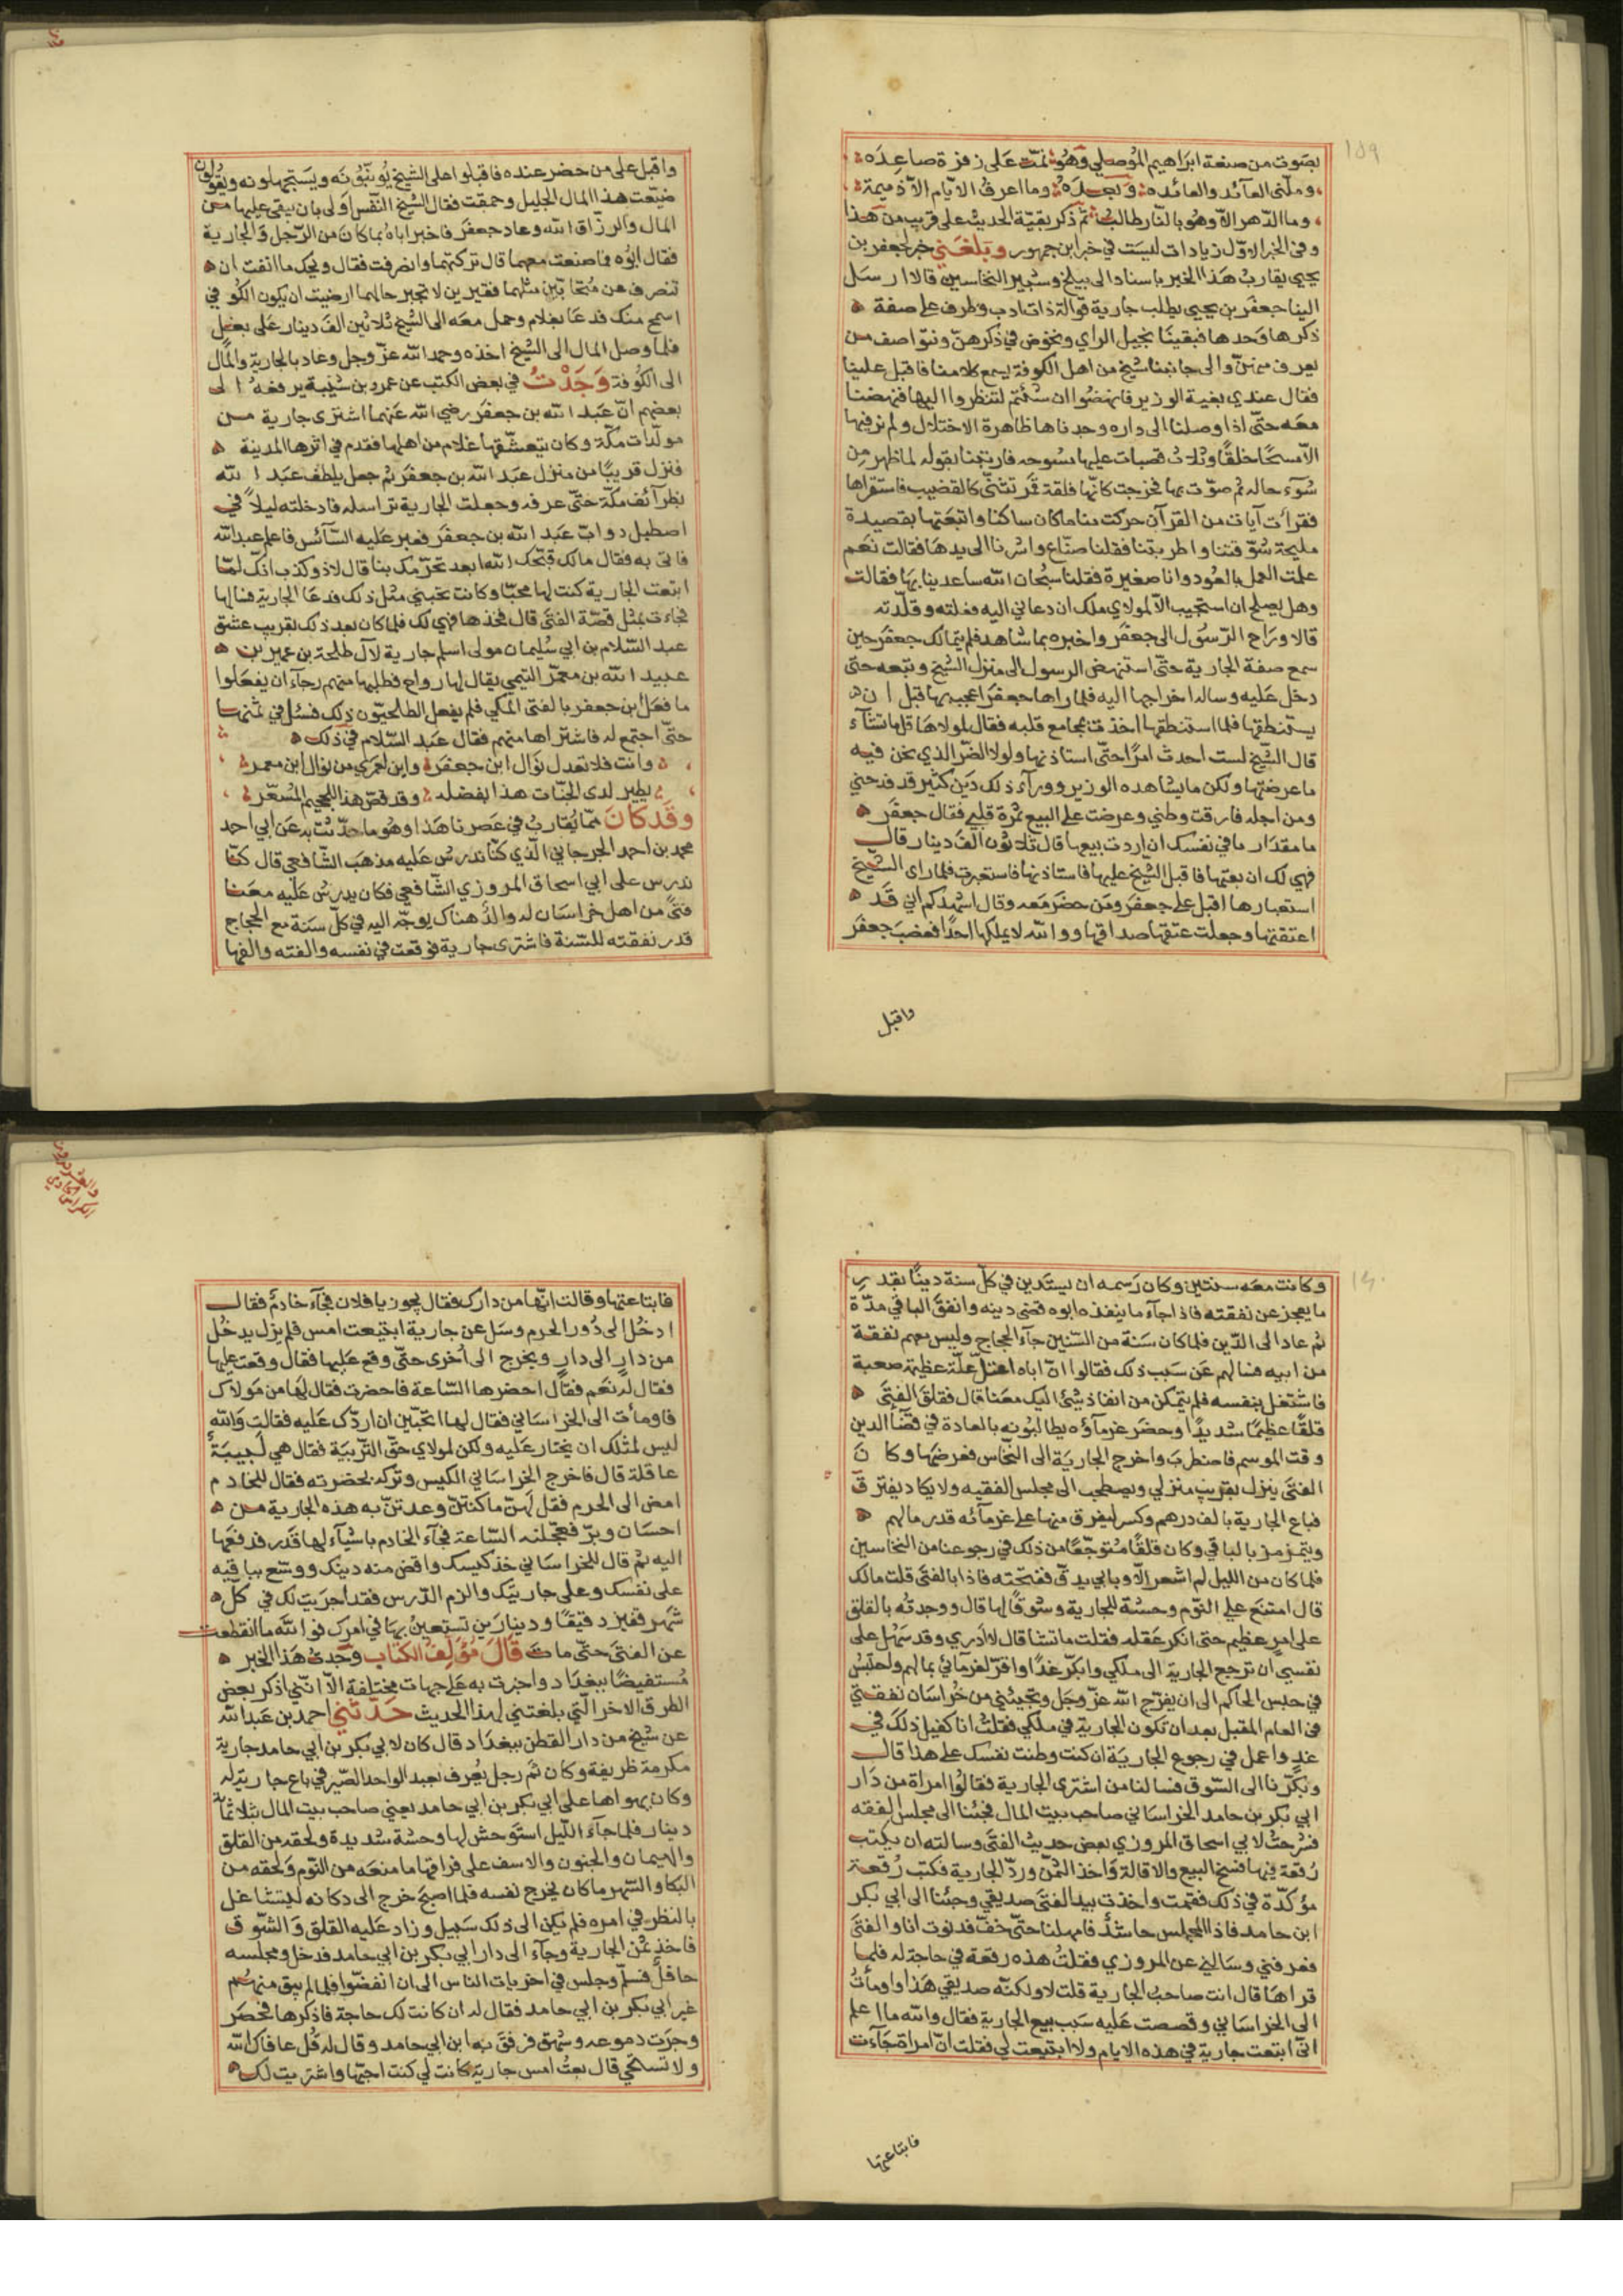 ١٥٩
بصوت من صنعة ابراهيم الموصلي وهو نمت على زفرة صاعده
وملّني العآئد والعائده وبعده وما اعرف الايّام الا ذميمة
وما الدّهر الا وهو بالثار طالب ثم ذكر بقيّة الحديث على قريب من هذا
وفى الخبر الاوّل زيادات ليست في خبر ابن جمهور وبلغني خبر لجعفر بن
يحيى يقارب هذا الخبر باسناد الى النخاسين قالا ارسل
الينا جعفر بن يحيى يطلب جارية قوالة ذات ادب وظرف على صفة
ذكرها وحدها فبقينا نجيل الراي ونخوض في ذكرهنّ ونتواصف من
يعرف منهنّ والى جانبنا شيخ من اهل الكوفة يسمع كلامنا فاقبل علينا
فقال عندي بغية الوزير فانهضوا ان شئتم لتنظروا اليها فنهضنا
معه حتى اذا وصلنا الى داره وجدناها ظاهرة الاختلال ولم نر فيها
الا مسحًا خلقًا وثلاث قصبات عليها مسوحه فارتبنا بقوله لما ظهر من
سوء حاله ثم صوّت بها فخرجت كانّها فلقة قمر تتثنّى كالقضيب فاستقراها
فقرأت آيات من القرآن حركت منا ما كان ساكنا واتبعتها بقصيدة
مليحة شوّقتنا واطربتنا فقلنا صنّاع واشرنا الى يدها فقالت نعم
علمت العمل بالعود وانا صغيرة فقلنا سبحان الله ساعدينا بها فقالت
وهل يصلح ان استجيب الا لمولاي ملك ان دعاني اليه فعلته وقلّدته
قالا وراح الرّسول الى جعفر واخبره بما شاهد فلم يتمالك جعفر حين
سمع صفة الجارية حتى استنهض الرسول الى منزل الشيخ وتبعه حتى
دخل عليه وساله اخراجها اليه فلما راها جعفر اعجبه بها قبل ان
يستنطقها فلما استنطقها اخذت بمجامع قلبه فقال لمولاها قل ما تشآء
قال الشيخ لست احدث امرًا حتى استاذنها ولولا الضر الذي نحن فيه
ما عرضتها ولكن ما يشاهده الوزير ووراء ذلك دين كثير قد فدحني
ومن اجله فارقت وطني وعرضت على البيع ثمرة قلبي فقال جعفر
ما مقدار ما في نفسك ان اردت بيعها قال ثلاثون الف دينار قال
فهي لك ان بعتها فاقبل الشيخ عليها فاستاذنها فاستعبرت فلما راى الشيخ
استعبارها اقبل على جعفر ومن حضر معه وقال اشهدكم اني قد
اعتقتها وجعلت عتقها صداقها ووالله لا يملكها احدًا فغضب جعفر
واقبل
واقبل على من حضر عنده فاقبلوا على الشيخ يؤنّبونه ويستجهلونه ويقولون
ضيّعت هذا المال الجليل وحمقت فقال الشيخ النفس اولى بان يبقى عليها من
المال والرزّاق الله وعاد جعفر فاخبر اباه بما كان من الرّجل والجارية
فقال ابوه فما صنعت معهما قال تركتهما وانصرفت فقال ويحك ما انفت ان
تنصرف عن متحابّين مثلهما فقيرين لا تجبر حالهما ارضيت ان يكون الكوفي
اسمح منك فدعا بغلام وحمل معه الى الشيخ ثلاثين الف دينار على بغل
فلما وصل المال الى الشيخ اخذه وحمد الله عزّ وجل وعاد بالجارية والمال
الى الكوفة وجدت في بعض الكتب عن عمرو بن شيبة يرفعه الى
بعضهم انّ عبد الله بن جعفر رضي الله عنهما اشترى جارية من
مولّدات مكّة وكان يتعشّقها غلام من اهلها فقدم في اثرها المدينة
فنزل قريبًا من منزل عبد الله بن جعفر ثم جعل يلطف عبد الله
بظرآئف مكّة حتى عرفه وجعلت الجارية تراسله فادخلته ليلاً في
اصطبل دوابّ عبد الله بن جعفر فعبر عليه السآئس فاعلم عبد الله
فاتى به فقال مالك قبّحك الله ابعد تحرّمك بنا قال لا ذوكذب انك لمّا
ابتعت الجارية كنت لها محبًّا وكانت تحبّني مثل ذلك فدعا الجارية فسالها
فجاءت بمثل قصّة الفتى قال فخذها فهي لك فلما كان بعد ذلك بقريب عشق
عبد السّلام بن ابي سليمان مولى اسلم جارية لآل طلحة بن عمير بن
عبيد الله بن معمر التيمي يقال لها رواح فطلبها منهم رجآء ان يفعلوا
ما فعل ابن جعفر بالفتى المكي فلم يفعل الطلحيّون ذلك فسئل في ثمنها
حتى اجتمع له فاشتراها منهم فقال عبد السّلام في ذلك
وانت فلا تعدل نوال ابن جعفر واين لعمري من نوال ابن معمر
يطير لدى الجنّات هذا بفضله وقد قصّ هذا للجحيم المسعّر
وقد كان ممّا يقارب في عصرنا هذا وهو ما حدّثت به عن ابي احمد
محمد بن احمد الجرجاني الّذي كنّا ندرس عليه مذهب الشّافعي قال كنّا
ندرس على ابي اسحاق المروزي الشّافعي فكان يدرس عليه معنا
فتى من اهل خراسان له والد هناك يوجّه اليه في كلّ سنة مع الحجاج
قدر نفقته للسّنة فاشترى جارية فوقعت في نفسه والفته والفها
١٦٠
وكانت معه سنتين وكان رسمه ان يستدين في كلّ سنة دينًا بقدر
ما يعجز عن نفقته فاذا جآء ما ينفذه ابوه قضى دينه وانفق الباقي مدّة
ثم عاد الى الدّين فلما كان سنة من السّنين جآء الحجاج وليس معهم نفقة
من ابيه فسالهم عن سبب ذلك فقالوا انّ اباه اعتلّ علّة عظيمة صعبة
فاشتغل بنفسه فلم يتمكن من انفاذ شيئ اليك معنا قال فقلق الفتى
قلقًا عظيمًا شديدًا وحضر غرمآؤه يطالبونه بالعادة في قضآ الدين
وقت الموسم فاضطرب واخرج الجارية الى النخاس فعرضها وكان
الفتى ينزل بقريب منزلي ونصطحب الى مجلس الفقيه ولا يكاد يفترق
فباع الجارية بالف درهم وكسر ليفرق منها على غرمآئه قدر مالهم
ويتمزمز بالباقي وكان قلقًا متوجّعًا من ذلك في رجوعنا من النخاسين
فلما كان من الليل لم اشعر الا وبابي يدقّ ففتحته فاذا بالفتى قلت مالك
قال امتنع علي النوم وحشة للجارية وشوقًا لها قال ووجدته بالقلق
على امر عظيم حتى انكر عقله فقلت ما تشا قال لا ادري وقد سهل على
نفسي ان ترجع الجارية الى ملكي وابكّر غدًا واقرّ لغرمآئي بمالهم واحتبس
في حبس الحاكم الى ان يفرّج الله عزّ وجل ويجيئني من خراسان نفقتي
في العام المقبل بعد ان تكون الجارية في ملكي فقلت انا كفيل ذلك في
غد واعمل في رجوع الجارية ان كنت وطنت نفسك على هذا قال
وبكّرنا الى السّوق فسالنا من اشترى الجارية فقالوا امراة من دار
ابي بكر بن حامد الخراساني صاحب بيت المال فجئنا الى مجلس الفقه
فشرحت لابي اسحاق المروزي بعض حديث الفتى وسالته ان يكتب
رقعة فيها فسخ البيع والاقالة واخذ الثمن وردّ الجارية فكتب رقعة
مؤكّدة في ذلك فقمت واخذت بيد الفتى صديقي وجئنا الى ابي بكر
ابن حامد فاذا المجلس حاشد فامهلنا حتى خفّ فدنوت انا والفتى
فعرفني وسالني عن المروزي فقلت هذه رقعة في حاجة له فلما
قراها قال انت صاحب الجارية قلت لا ولكنه صديقي هذا واومأت
الى الخراساني وقصصت عليه سبب بيع الجارية فقال والله ما اعلم
انّي ابتعت جارية في هذه الايام ولا ابتيعت لي فقلت انّ امراة جآءت
فابتاعتها
فابتاعتها وقالت انّها من دارك فقال يجوز يا فلان فجآء خادم فقال
ادخل الى دور الحرم وسل عن جارية ابتيعت امس فلم يزل يدخل
من دار الى دار ويخرج الى أخرى حتى وقع عليها فقال وقعت عليها
فقال له نعم فقال احضرها السّاعة فاحضرت فقال لها من مولاك
فاومأت الى الخراساني فقال لها اتحبّين ان اردّك عليه فقالت والله
ليس لمثلك ان يختار عليه ولكن لمولاي حقّ التربية فقال هي لبيبة
عاقلة قال فاخرج الخراساني الكيس وتركه بحضرته فقال للخادم
امض الى الحرم فقل لهنّ ما كنتنّ وعدتنّ به هذه الجارية من
احسان وبرّ فعجّلنه السّاعة فجآء الخادم باشيآء لها قدر فدفعها
اليه ثم قال للخراساني خذ كيسك واقض منه دينك ووسّع بباقيه
على نفسك وعلى جاريتك والزم الدّرس فقد اجريت لك في كلّ
شهر قفيز دقيقًا ودينارين تستعين بها في امرك فوالله ما انقطعت
عن الفتى حتى مات قال مؤلف الكتاب وجدت هذا الخبر
مستفيضًا ببغداد واخبرت به على جهات مختلفة الا انني اذكر بعض
الطرق الاخر الّتي بلغتني لهذا الحديث حدّثني احمد بن عبد الله
عن شيخ من دار القطن ببغداد قال كان لابي بكر بن ابي حامد جارية
مكرمة ظريفة وكان ثمّ رجل يعرف بعبد الواحد الصّيرفي باع جارية له
وكان يهواها على ابي بكر بن ابي حامد يعني صاحب بيت المال بثلاثمآئة
دينار فلما جآء الليل استوحش لها وحشة شديدة ولحقه من القلق
والهيمان والجنون والاسف على فراقها ما منعه من النوم ولحقه من
البكا والسّهر ما كان يخرج نفسه فلما اصبح خرج الى دكانه ليتشاغل
بالنظر في امره فلم يكن الى ذلك سبيل وزاد عليه القلق والشّوق
فاخذ ثمن الجارية وجآء الى دار ابي بكر بن ابي حامد فدخل ومجلسه
حافل فسلّم وجلس في اخريات الناس الى ان انفضّوا فلما لم يبق منهم
غير ابي بكر بن ابي حامد فقال له ان كانت لك حاجة فاذكرها فحصر
وجرت دموعه وشهق فرفق به ابن ابي حامد وقال له قل عافاك الله
ولا تستحي قال بعت امس جارية كانت لي كنت احبّها واشتريت لك